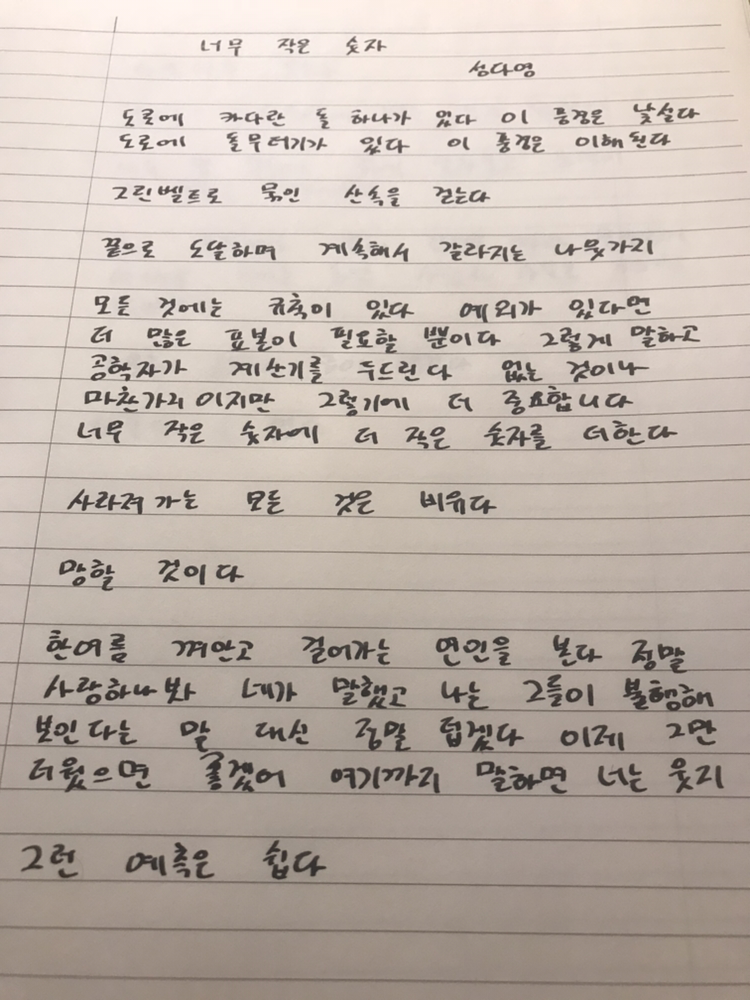 너무 작은 숫자
성다영
도로에 커다란 돌 하나가 있다 이 풍경은 낯설다
도로에 돌무더기가 있다 이 풍경은 이해된다
그린벨트로 묶인 산속을 걷는다
끝으로 도달하며 계속해서 갈라지는 나뭇가지
모든 것에는 규칙이 있다 예외가 있다면
더 많은 표본이 필요할 뿐이다 그렇게 말하고
공학자가 계산기를 두드린다 없는 것이나
마찬가지이지만 그렇기에 더 중요합니다
너무 작은 숫자에 더 작은 숫자를 더한다
사라져가는 모든 것은 비유다
망할 것이다
한여름 껴안고 걸어가는 연인을 본다 정말
사랑하나봐 네가 말했고 나는 그들이 불행해
보인다는 말 대신 정말 덥겠다 이제 그만
더웠으면 좋겠어 여기까지 말하면 너는 웃지
그런 예측은 쉽다